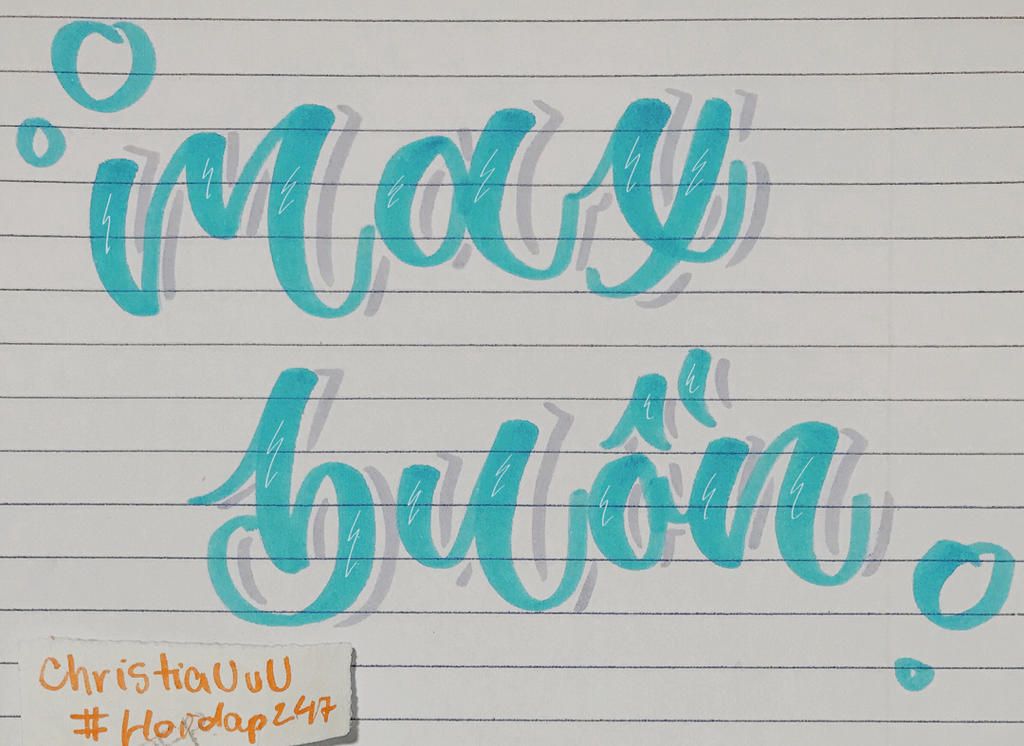 may
buồn
ChristiaUuU
#Hordap247